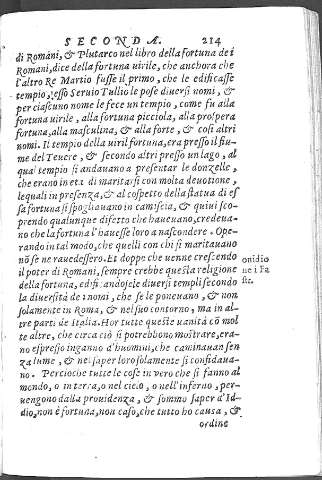 SECONDA. 214
di Romani, & Plutarco nel libro della fortuna de i
Romani, dice della fortuna uirile, che anchora che
l'altro Re Martio fusse il primo, che le edificasse
tempio, esso Seruio Tullio le pose diuersi nomi, &
per ciascuno nome le fece un tempio, come fu alla
fortuna uirile, alla fortuna picciola, alla prospera
fortuna, alla masculina, & alla forte, & cosi altri
nomi. Il tempio della uiril fortuna, era presso il fiu-
me del Teuere, & secondo altri presso un lago, al
qual tempio si andauano a presentar le donzelle,
che erano in età di maritarsi con molta deuotione,
le quali in presenza, & al cospetto della statua di es
sa fortuna si spogliauano in camiscia, & quiui sco-
prendo qualunque difetto che haueuano, credeua-
no che la fortuna l'hauesse loro a nascondere. Ope-
rando in tal modo, che quelli con chi si maritauano
nō se ne rauedessero. Et doppo che uenne crescendo
il poter di Romani, sempre crebbe questa religione
della fortuna, edificandosele diuersi templi secondo
la diuersità de i nomi, che se le poneuano, & non
solamente in Roma, & nel suo contorno, ma in al-
tre parti de Italia. Hor tutte queste uanità cō mol
te altre, che circa ciò si potrebbono mostrare, era-
no espresso inganno d'huomini, che caminauan sen
za lume, & nel saper loro solamente si confidaua-
no. Percioche tutte le cose in vero che si fanno al
mondo, o in terra, o nel cielo, o nell'inferno, per-
uengono dalla prouidenza, & sommo saper d'Id-
dio, non è fortuna, non caso, che tutto ha causa, &
ordine
onidio
ne i Fa
sti.